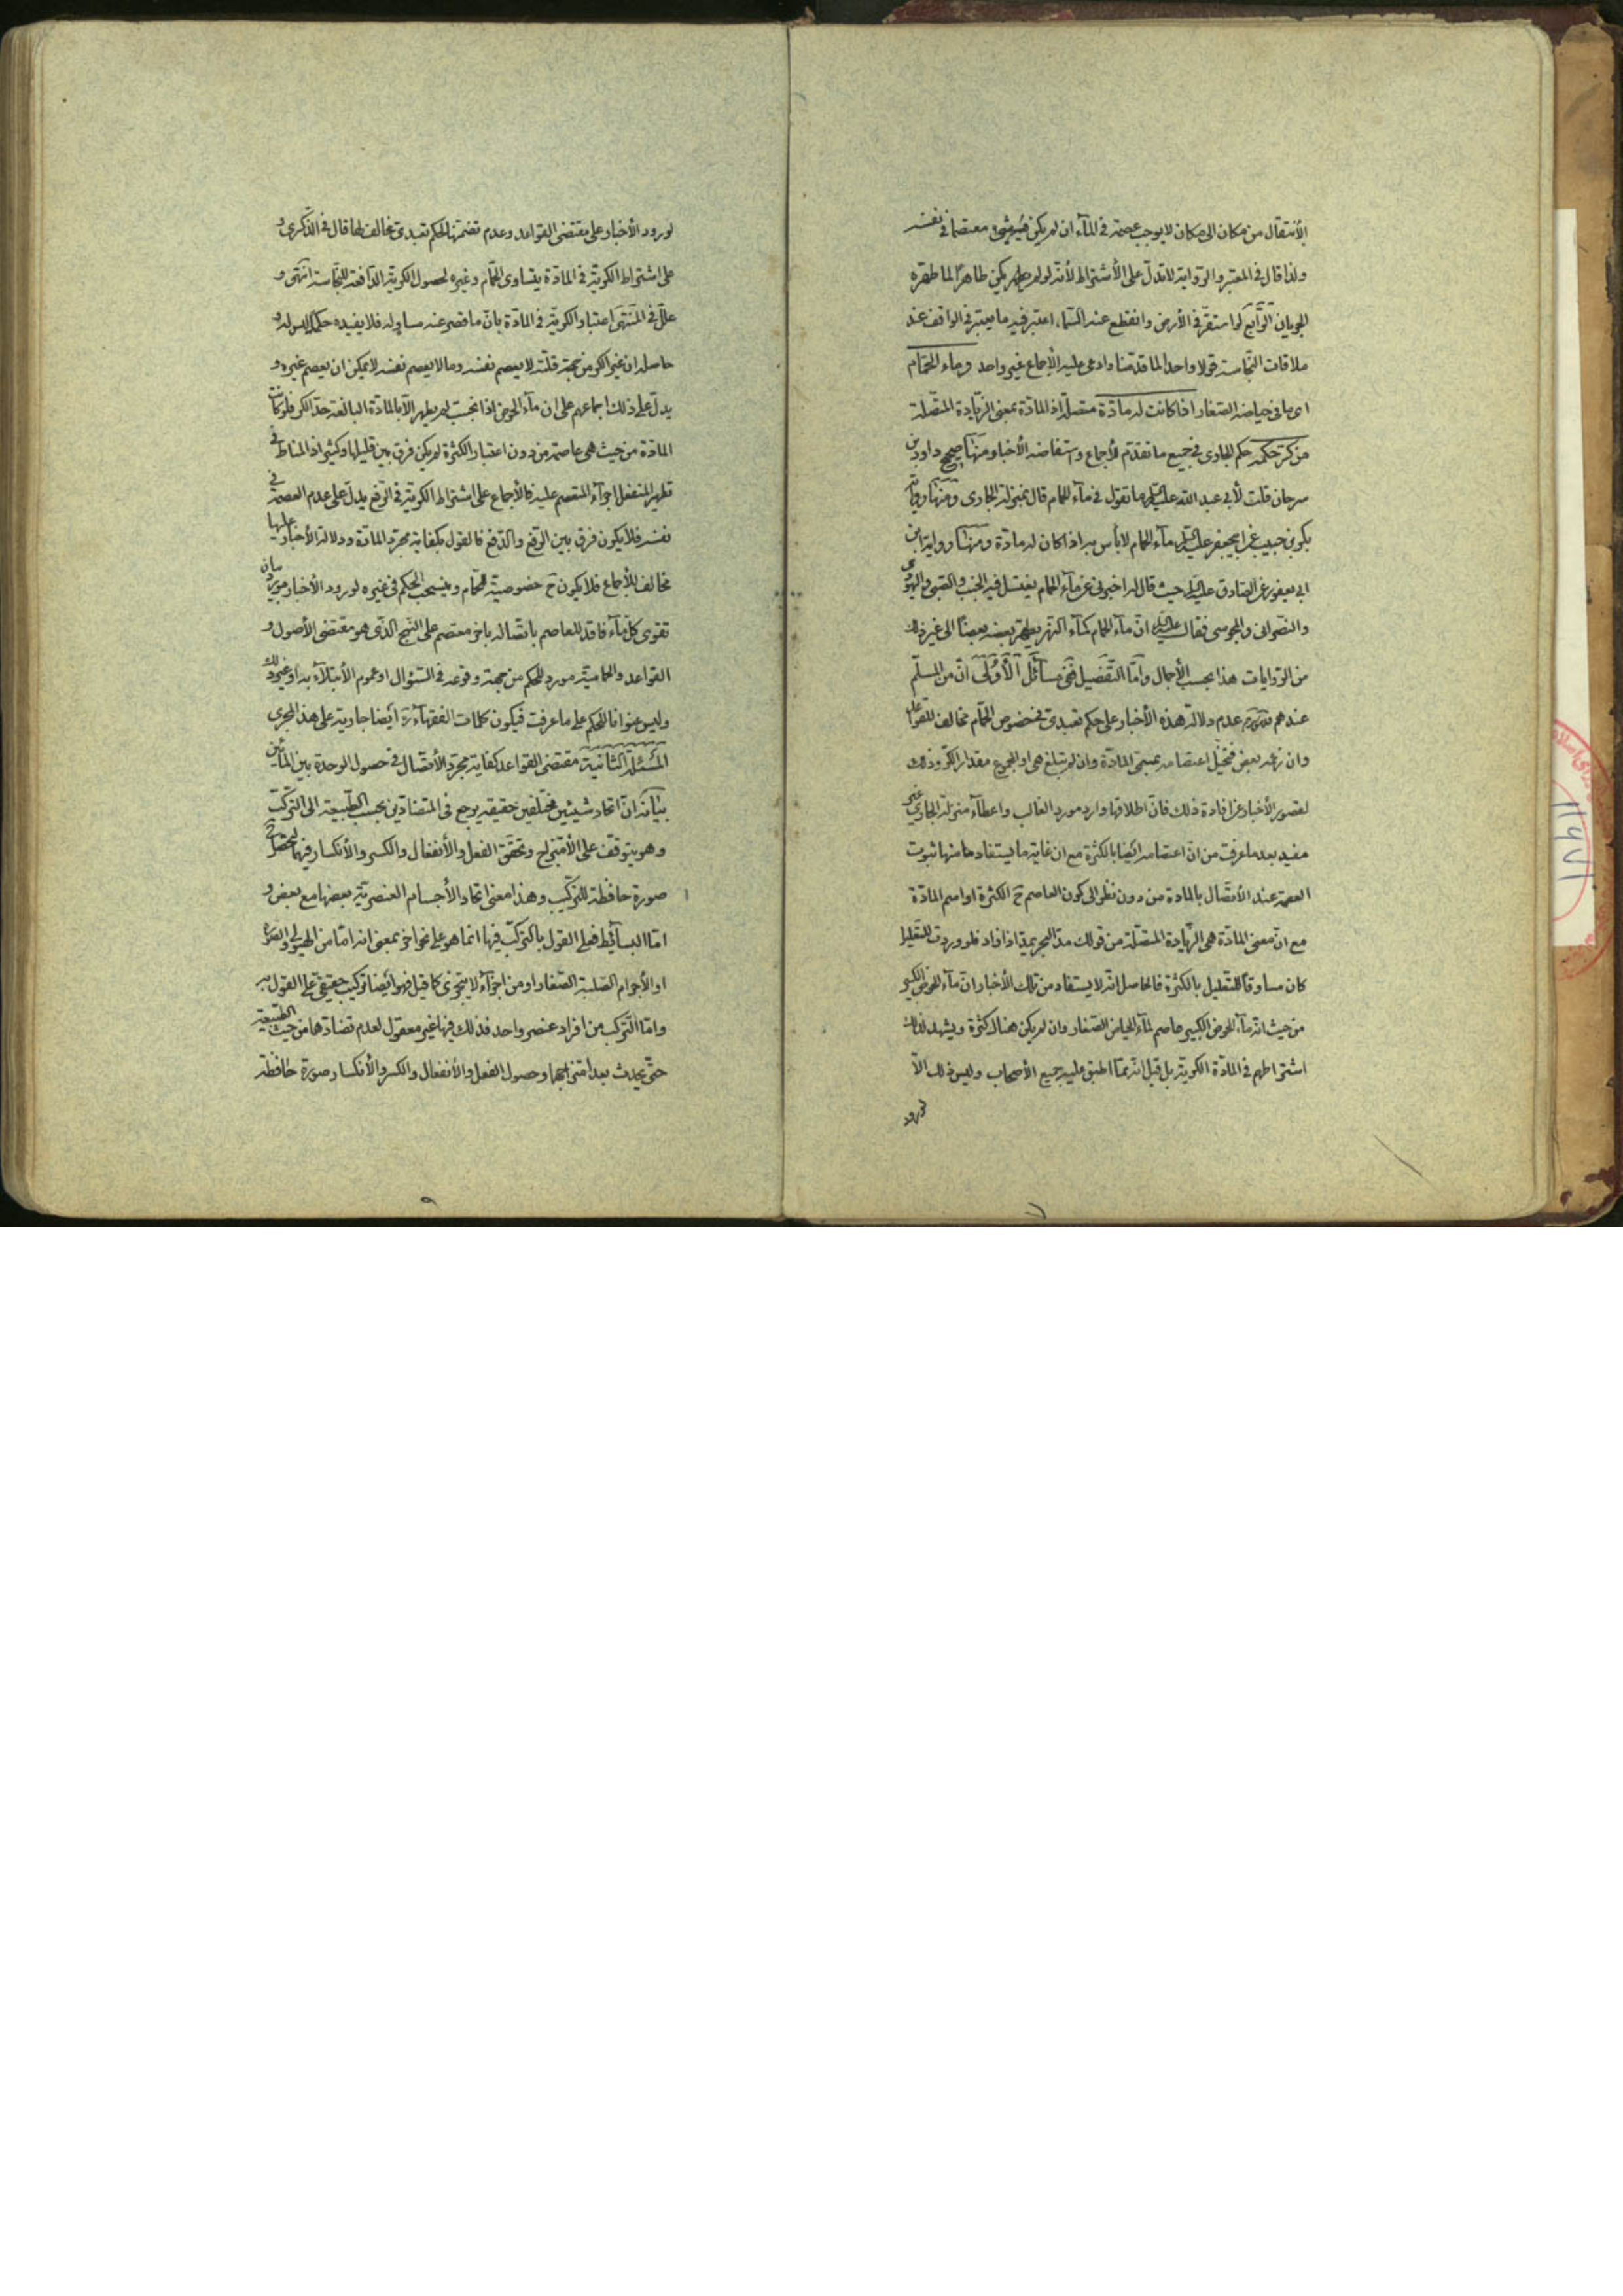 الأنتقال من مكان الى مكان لا يوجب عصمة فى المآء ان لم يكن فيه شئ معتصما فى نفسه
ولذا قال فى المعتبر والرواية لا تدل على الأشتراط لأنه لو لم يكن طاهرا لما طهره
الجريان الرّابع لو استقرّ فى الأرض وانقطع عنه السّماء اعتبر فيه ما يعتبر فى الواقف عند
ملاقات النّجاسة قولا واحدا لما قدّمنا وادعى عليه الأجماع غير واحد وماء الحمّام
اى ما فى حياضه الصّغار اذا كانت له مادّة متصلة اذ المادّة بمعنى الزّيادة المتّصلة
من كرّ حكمه حكم الجارى فى جميع ما تقدّم للأجماع واستفاضة الأخبار ومنها صحيح داود بن
سرحان قلت لأبى عبد الله عليه السلم ما تقول فى مآء الحمام قال بمنزلة الجارى ومنها رواية
بكر بن حبيب عن ابيجعفر عليه السلم مآء الحمام لا بأس به اذا كان له مادّة ومنها رواية ابن
ابى يعفور عن الصّادق عليه السلم حيث قال له اخبرنى عن مآء الحمام يغتسل فيه الجنب والصّبى واليهودى
والنّصرانى والمجوسى فقال عليه السلم انّ مآء الحمام كمآء النّهر يطهّر بعضه بعضًا الى غير ذلك
من الرّوايات هذا بحسب الأجمال وأمّا التّفضيل ففى مسآئل الأولى انّ من المسلّم
عندهم عدم دلالة هذه الأخبار على حكم تعبدى فى خصوص الحمّام مخالف للقواعد
وان زعمه بعض فتخيل اعتصامه بمسمّى المادّة وان لم تبلغ هى او المجموع مقدار الكرّ وذلك
لقصور الأخبار عن افادة ذلك فانّ اطلاقها وارد مورد الغالب واعطآء منزلة الجارى غير
مفيد بعد ما عرفت من انّ اعتصامه ايضا بالكثرة مع ان غاية ما يستفاد منها ثبوت
العصمة عند الأتّصال بالمادة من دون نظر الى كون العاصم ح الكثرة او اسم المادّة
مع انّ معنى المادّة هى الزّيادة المتّصلة من قولك مدّ البحر يمدّ اذا زاد فلو وردت للتّعليل
كان مساوقًا للتّعليل بالكثرة فالحاصل انّه لا يستفاد من تلك الأخبار انّ مآء الحوض الكبير
من حيث انّه مآء الحوض الكبير عاصم لمآء الحياض الصّغار وان لم يكن هناك كثرة ويشهد لذلك
اشتراطهم فى المادّة الكريّة بل قيل انّه ممّا اطبق عليه جميع الأصحاب وليس ذلك الّا
لورود
٧
لورود الأخبار على مقتضى القواعد وعدم تضمّنها لحكم تعبدى مخالف لها قال فى الذّكرى و
على اشتراط الكريّة فى المادّة يتساوى الحمّام وغيره لحصول الكريّة الدّافعة للنّجاسة انتهى و
علّل فى المنتهى اعتبار الكريّة فى المادّة بانّ ما قصر عنه مساو له فلا يفيده حكما ليس له و
حاصله ان غير الكر من جهة قلّته لا يعصم نفسه وما لا يعصم نفسه لا يمكن ان يعصم غيره و
يدلّ على ذلك اجماعهم على ان مآء الحوض اذا نجست لم يطهر الّا بالمادّة البالغة حدّ الكر فلو كانت
المادّة من حيث هى عاصمة من دون اعتبار الكثرة لم يكن فرق بين قليلها وكثيرها اذ المناط فى
تطهير المنفعل اجزآء المعتصم عليه فالأجماع على اشتراط الكريّة فى الرّفع يدلّ على عدم العصمة فى
نفسه فلا يكون فرق بين الرّفع والدّفع فالقول بكفاية مجرّد المادّة ودلالة الأخبار عليها
مخالف للأجماع فلا يكون ح خصوصيّة للحمّام وينسحب الحكم فى غيره لورود الأخبار مورد بيان
تقوى كل مآء فاقد للعاصم باتّصاله بآخر معتصم على النّهج الّذى هو مقتضى الأصول و
القواعد والحماميّة مورد للحكم من جهة وقوعه فى السّؤال او عموم الأبتلاء به او غير ذلك
وليس عنوانا للحكم على ما عرفت فيكون كلمات الفقهآء ايضا جارية على هذا المجرى
المسئلة الثّانية مقتضى القواعد كفاية مجرّد الأتّصال فى حصول الوحدة بين المائين
بيانه انّ اتحاد شيئين مختلفين حقيقة يرجع فى المتضادّين بحسب الطّبيعة الى التركّب
وهو يتوقف على الأمتزاج وتحقّق الفعل والأنفعال والكسر والأنكسار فيهما
صورة حافظة للتّركيب وهذا معنى اتحاد الأجسام العنصريّة بعضها مع بعض و
امّا البسآئط فعلى القول بالتركّب فيها انّما هو على نحو آخر بمعنى انه امّا من الهيولى والصّورة
او الأجرام الصّلبة الصّغار او من اجزآء لا يتجزى كما قيل فهو ايضا تركيب حقيقى على القول به
وامّا التّركب من افراد عنصر واحد فذلك فيها غير معقول لعدم تضادّها من حيث الطّبيعة
حتّى يحدث بعد امتزاجهما وحصول الفعل والأنفعال والكسر والأنكسار صورة حافظة